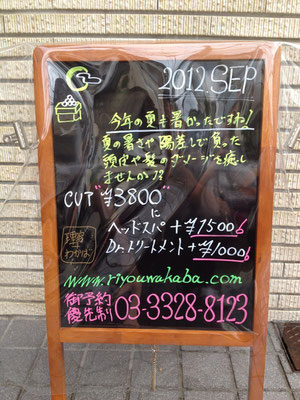 2012.SEP
今年の夏も暑かったですね!
夏の暑さや陽差しで負った
頭皮や髪のダメージを癒し
ませんか!?
CUT "¥3800"
に
ヘッドスパ +¥1500
Dr.トリートメント +¥1000
理容
わかば
www.riyouwakaba.com
御予約
優先制
03-3328-8123